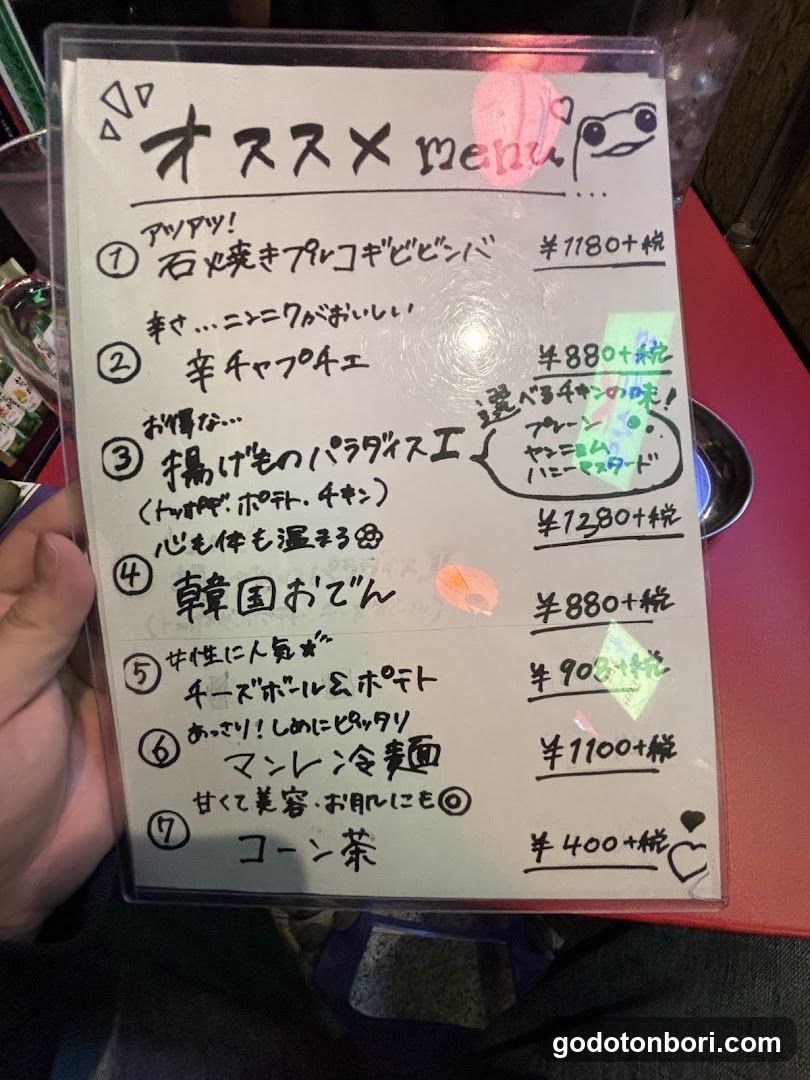 オススメ menu
アツアツ!
① 石焼きプルコギビビンバ ¥1180+税
辛さ...ニンニクがおいしい
② 辛チャプチェ ¥880+税
お得な...
③ 揚げものパラダイスエ
(トッポギ・ポテト・チキン)
選べるチキンの味!
プレーン
ヤンニョム
ハニーマスタード
¥1280+税
心も体も温まる
④ 韓国おでん ¥880+税
女性に人気
⑤ チーズボール&ポテト ¥908+税
あっさり!しめにピッタリ
⑥ マンレン冷麺 ¥1100+税
甘くて美容・お肌にも◎
⑦ コーン茶 ¥400+税
godotonbori.com